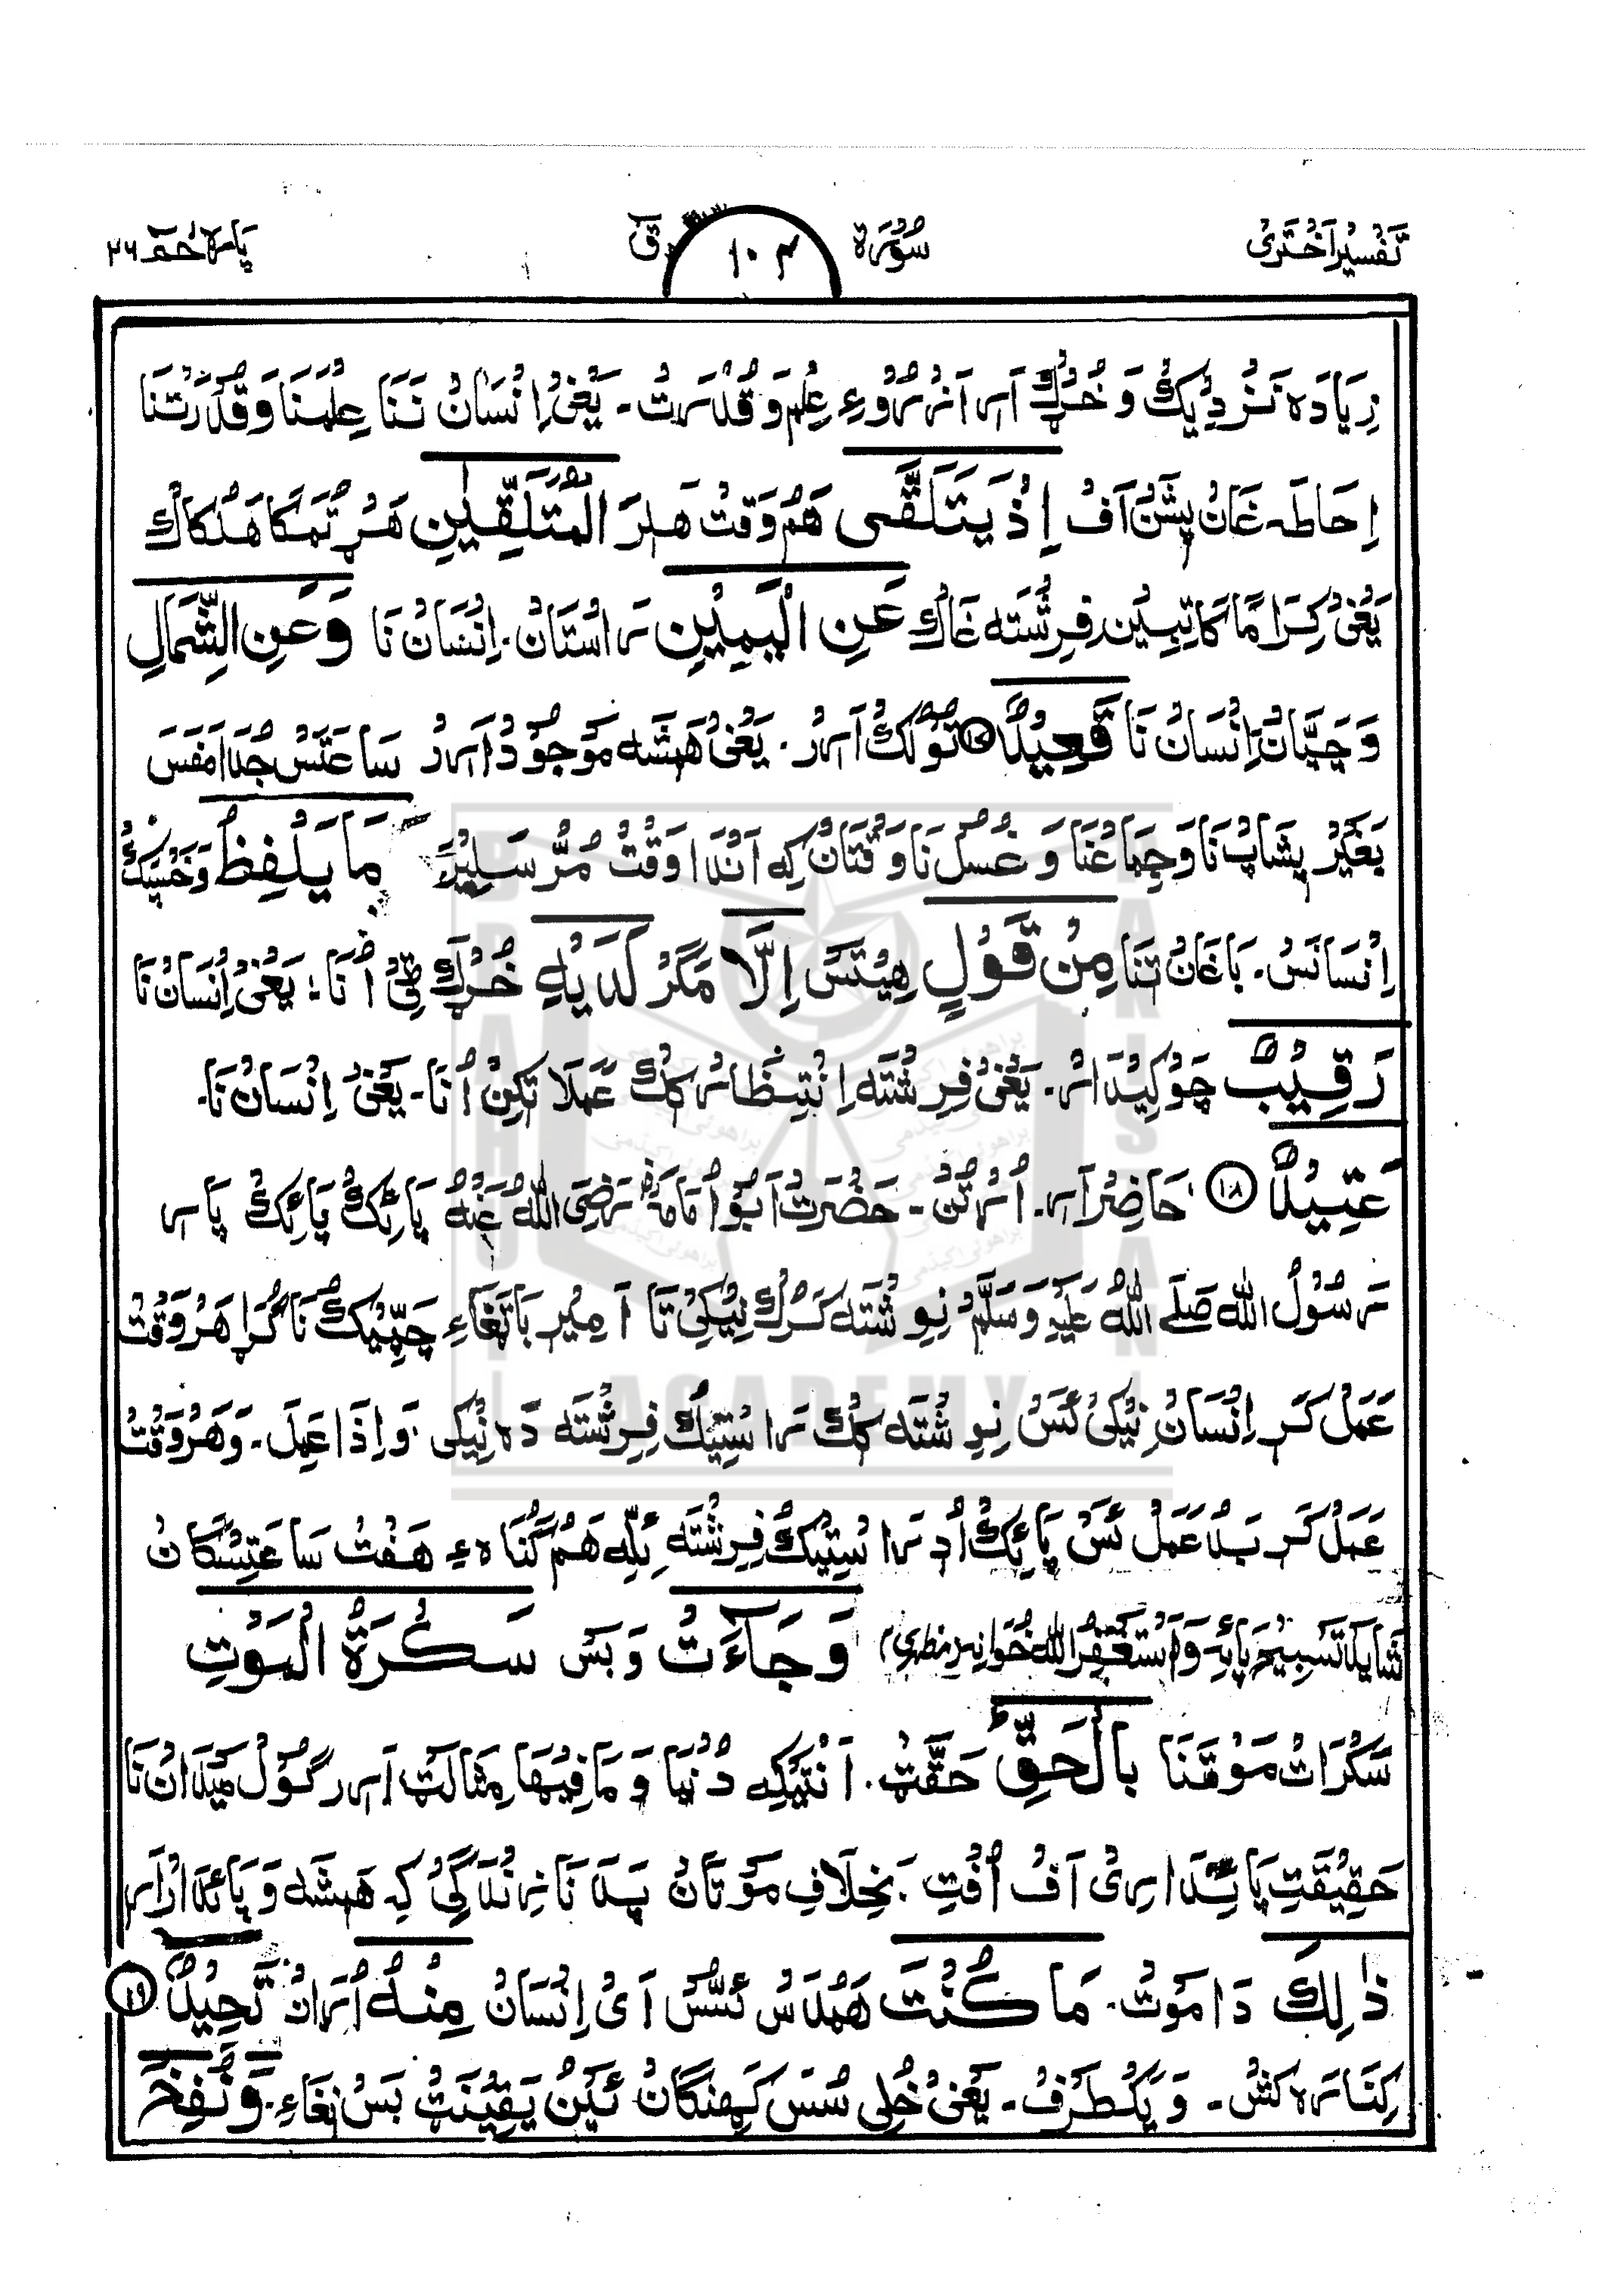 تَفْسِیْر اَخْتَرِیْ سُوْرَة ۱۰۳ قٓ پَارَه حٰمٓ ۲۶
زِیَادَه نَزْدِیْکُ وَ خُڑْکْ اَرِ اَنْرُ رُوءِ عِلْم وَ قُدْرَتْ۔ یَعْنِیْ اِنْسَانْ نَنَا عِلْمَنَا وَ قُدْرَتْنَا
اِحَاطَہ غَانْ پِشَّنْ اَفْ اِذْ یَتَلَقَّی هَمْ وَقْتْ هَلِرَ الْمُتَلَقِّیٰنِ هَڑ تُمَکَا هَلْکَاکْ
یَعْنِیْ کِرَامًا کَاتِبِیْن فِرِشْتَه غَاکْ عَنِ الْیَمِیْنِ رَاسْتَانْ۔ اِنْسَانْ نَا وَعَنِ الشِّمَالِ
وَ چَپَّانْ اِنْسَانْ نَا قَعِیْدٌ ۱۷ تُوْلُکْ اَرِرْ۔ یَعْنِیْ هَمِشَه مَوْجُوْدْ اَرِرْ سَاعَتَسْ جُدَا مَفَسَ
بَغَیْر پِشَابْ نَا وَ جِمَاعْنَا وَ غُسْل نَا وَقْتَانْ کِه اَنْدَا وَقْتْ مُرّ سَلِیْرَ مَا یَلْفِظُ وَ خَسِّیْکْ
اِنْسَانَسْ۔ بَاغَانْ تَنَا مِنْ قَوْلٍ هِیْتَسْ اِلَّا مَگَرْ لَدَیْهِ خُڑْکْ ٹِیْ اُنَا؛ یَعْنِیْ اِنْسَانْ نَا
رَقِیْبٌ چَوْکِیْدَارْ۔ یَعْنِیْ فِرِشْتَه اِنْتِظَار کُکْ عَمَلَا تِکِنْ اُنَا۔ یَعْنِیْ اِنْسَانْ نَا۔
عَتِیْدٌ ۱۸ حَاضِرْ اَرِ۔ اُرْتَنْ۔ حَضْرَتْ اَبُوْ اُمَامَهْ رَضِیَ اللهُ عَنْهُ پَائِکْ پَائِکْ پَارِ
رَسُوْلُ الله صَلَّے اللهُ عَلَیْهِ وَسَلَّمْ نِوِشْتَه کَرُکْ نِیْکِیْ تَا اَمِیْر بَاتَغَاءِ چَپِّیْکْ نَا گُڑَا هَرْ وَقْتْ
عَمَلْ کَرِ اِنْسَانْ نِیْکِیْ ئَسْ نِوِشْتَه کُکْ رَاسْتِیْکْ فِرِشْتَه دَه نِیْکِی۔ وَاِذَا عَمِلَ۔ وَهَرْ وَقْتْ
عَمَلْ کَرِ بَدْ عَمَلْ ئَسْ پَائِکْ اُدِ رَاسْتِیْکْ فِرِشْتَه ئِلِّه هَمْ گُنَاه ءِ هَفْتْ سَاعَتِسْکَانْ
شَایَد تَسْبِیْح پَائِے وَ اَسْتَغْفِرُ الله خُوَانِے (مظهری) وَ جَآءَتْ وَ بَسْ سَکْرَةُ الْمَوْتِ
سَکَرَاتْ مَوْتَنَا بِالْحَقِّ حَقَّتْ۔ اَنْتَیْکِه دُنْیَا وَ مَا فِیْهَا مِثَالَتْ اَرِر گَوْل مَیْدَانْ نَا
حَقِیْقَتِ پَائِدَارِیْ اَفْ اُفْتِ۔ بَخِلَافِ مَوْتَانْ پَدَنَا زِنْدَگِیْ کِه هَمِشَه وَ پَائِدَار اَرِ
ذٰلِکَ دَا مَوْتْ۔ مَا کُنْتَ هَمْدَاسْ ئَسُّسْ اَیْ اِنْسَانْ مِنْهُ اُرَانْ تَحِیْدُ ۱۹
کِنَارَه کَشْ۔ وَ یَکْطَرَفْ۔ یَعْنِیْ خُلِی سُسَ کَهِنْگَانْ ئَیْنْ یَقِیْنَتْ بَسْ نِغَاءِ۔ وَنُفِخَ